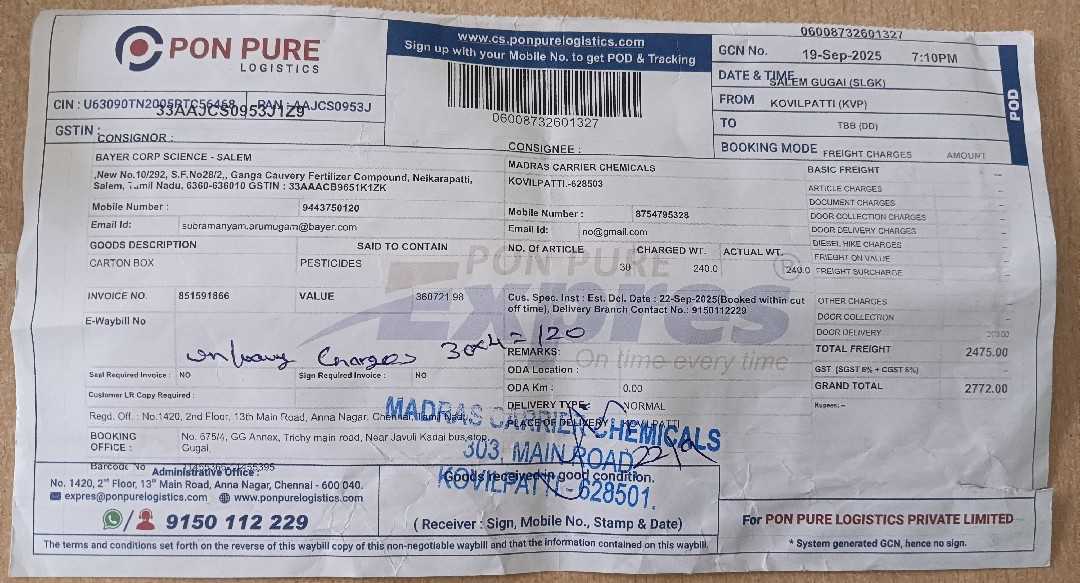 PON PURE
LOGISTICS
www.cs.ponpurelogistics.com
Sign up with your Mobile No. to get POD & Tracking
06008732601327
06008732601327
GCN No.
19-Sep-2025 7:10PM
DATE & TIME
SALEM GUGAI (SLGK)
FROM KOVILPATTI (KVP)
TO TBB (DD)
BOOKING MODE
POD
CIN : U63090TN2005PTC56468 PAN : AAJCS0953J
33AAJCS0953J1Z9
GSTIN :
CONSIGNOR :
BAYER CORP SCIENCE - SALEM
,New No.10/292, S.F.No28/2,, Ganga Cauvery Fertilizer Compound, Neikarapatti,
Salem, Tamil Nadu, 6360-636010 GSTIN : 33AAACB9651K1ZK
Mobile Number : 9443750120
Email Id: subramanyam.arumugam@bayer.com
CONSIGNEE :
MADRAS CARRIER CHEMICALS
KOVILPATTI.-628503
Mobile Number : 8754795328
Email Id: no@gmail.com
GOODS DESCRIPTION SAID TO CONTAIN
CARTON BOX PESTICIDES
NO. Of ARTICLE CHARGED WT. ACTUAL WT.
30 240.0 240.0
INVOICE NO. 851591866 VALUE 360721.98
E-Waybill No
Cus. Spec. Inst : Est. Del. Date : 22-Sep-2025(Booked within cut
off time), Delivery Branch Contact No.: 9150112229
PON PURE
Expres
On time every time
Charges 30x4 = 120
REMARKS:
ODA Location :
ODA Km : 0.00
DELIVERY TYPE: NORMAL
PLACE OF DELIVERY : KOVILPATTI
Seal Required Invoice : NO Sign Required Invoice : NO
Customer LR Copy Required :
FREIGHT CHARGES AMOUNT
BASIC FREIGHT
ARTICLE CHARGES
DOCUMENT CHARGES
DOOR COLLECTION CHARGES
DOOR DELIVERY CHARGES
DIESEL HIKE CHARGES
FREIGHT ON VALUE
FREIGHT SURCHARGE
OTHER CHARGES
DOOR COLLECTION
DOOR DELIVERY
TOTAL FREIGHT 2475.00
GST (SGST 6% + CGST 6%)
GRAND TOTAL 2772.00
Rupees:--
Regd. Off. : No.1420, 2nd Floor, 13th Main Road, Anna Nagar, Chennai, Tamil Nadu
BOOKING OFFICE : No. 675/4, GG Annex, Trichy main road, Near Javuli Kadai bus stop,
Gugai,
Barcode No
MADRAS CARRIER CHEMICALS
303, MAIN ROAD
KOVILPATTI - 628501.
22/9
Goods received in good condition.
( Receiver : Sign, Mobile No., Stamp & Date)
Administrative Office :
No. 1420, 2nd Floor, 13th Main Road, Anna Nagar, Chennai - 600 040.
expres@ponpurelogistics.com www.ponpurelogistics.com
9150 112 229
For PON PURE LOGISTICS PRIVATE LIMITED
* System generated GCN, hence no sign.
The terms and conditions set forth on the reverse of this waybill copy of this non-negotiable waybill and that the information contained on this waybill.